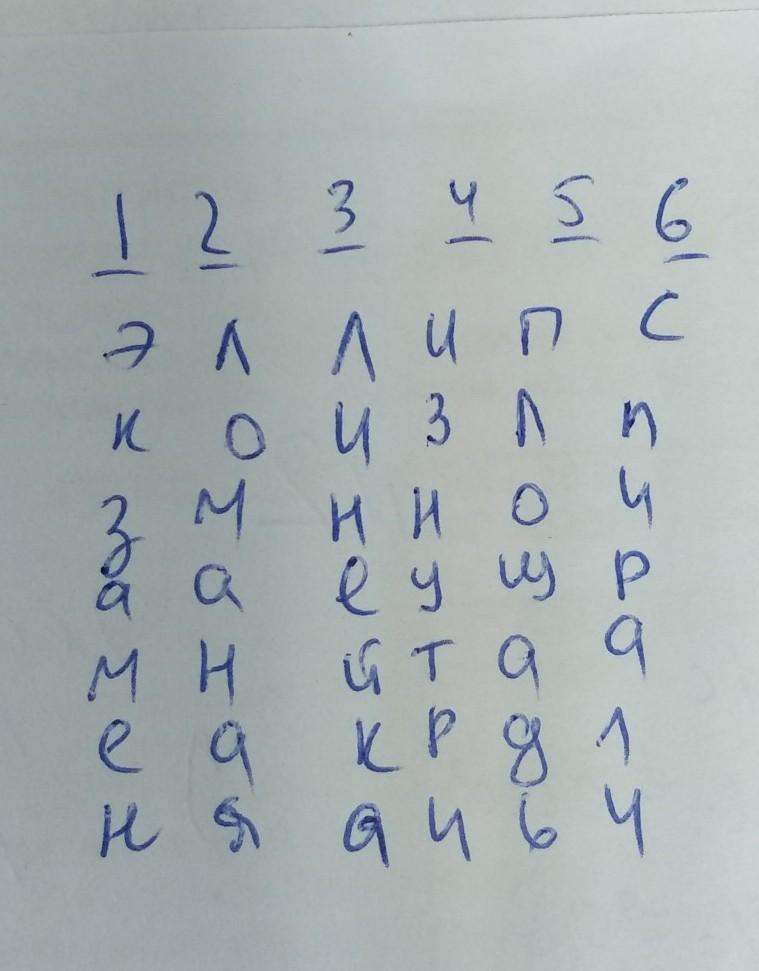 1 2 3 4 5 6
Э Л Л И П С
к о и з л п
з м н н о и
а а е у щ р
м н й т а а
е а к р д л
н я а и ь и